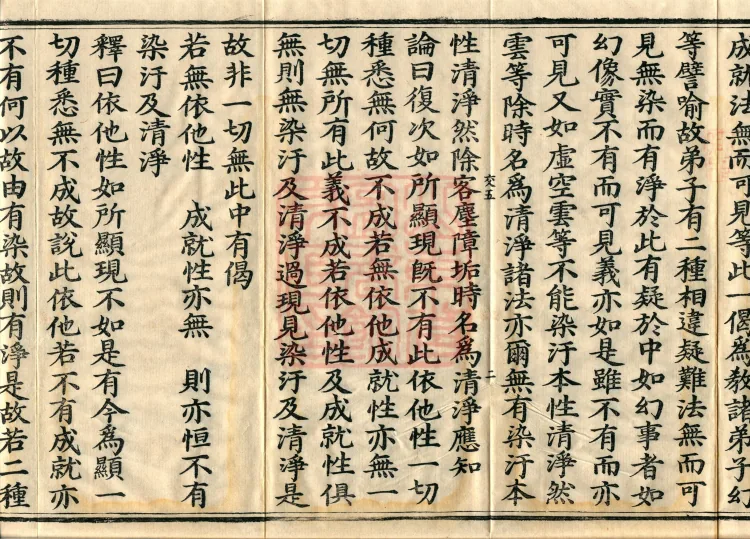 成就法無而可見等此一偈爲教諸弟子幻
等譬喻故弟子有二種相違疑難法無而可
見無染而有淨於此有疑於中如幻事者如
幻像實不有而可見義亦如是雖不有而亦
可見又如虛空雲等不能染汙本性清淨然
雲等除時名爲清淨諸法亦爾無有染汙本
交五
二
性清淨然除客塵障垢時名爲清淨應知
論曰復次如所顯現旣不有此依他性一切
種悉無何故不成若無依他成就性亦無一
切無所有此義不成若依他性及成就性俱
無則無染汙及清淨過現見染汙及清淨是
故非一切無此中有偈
若無依他性 成就性亦無 則亦恒不有
染汙及清淨
釋曰依他性如所顯現不如是有今爲顯一
切種悉無不成故說此依他若不有成就亦
不有何以故由有染故則有淨是故若二種